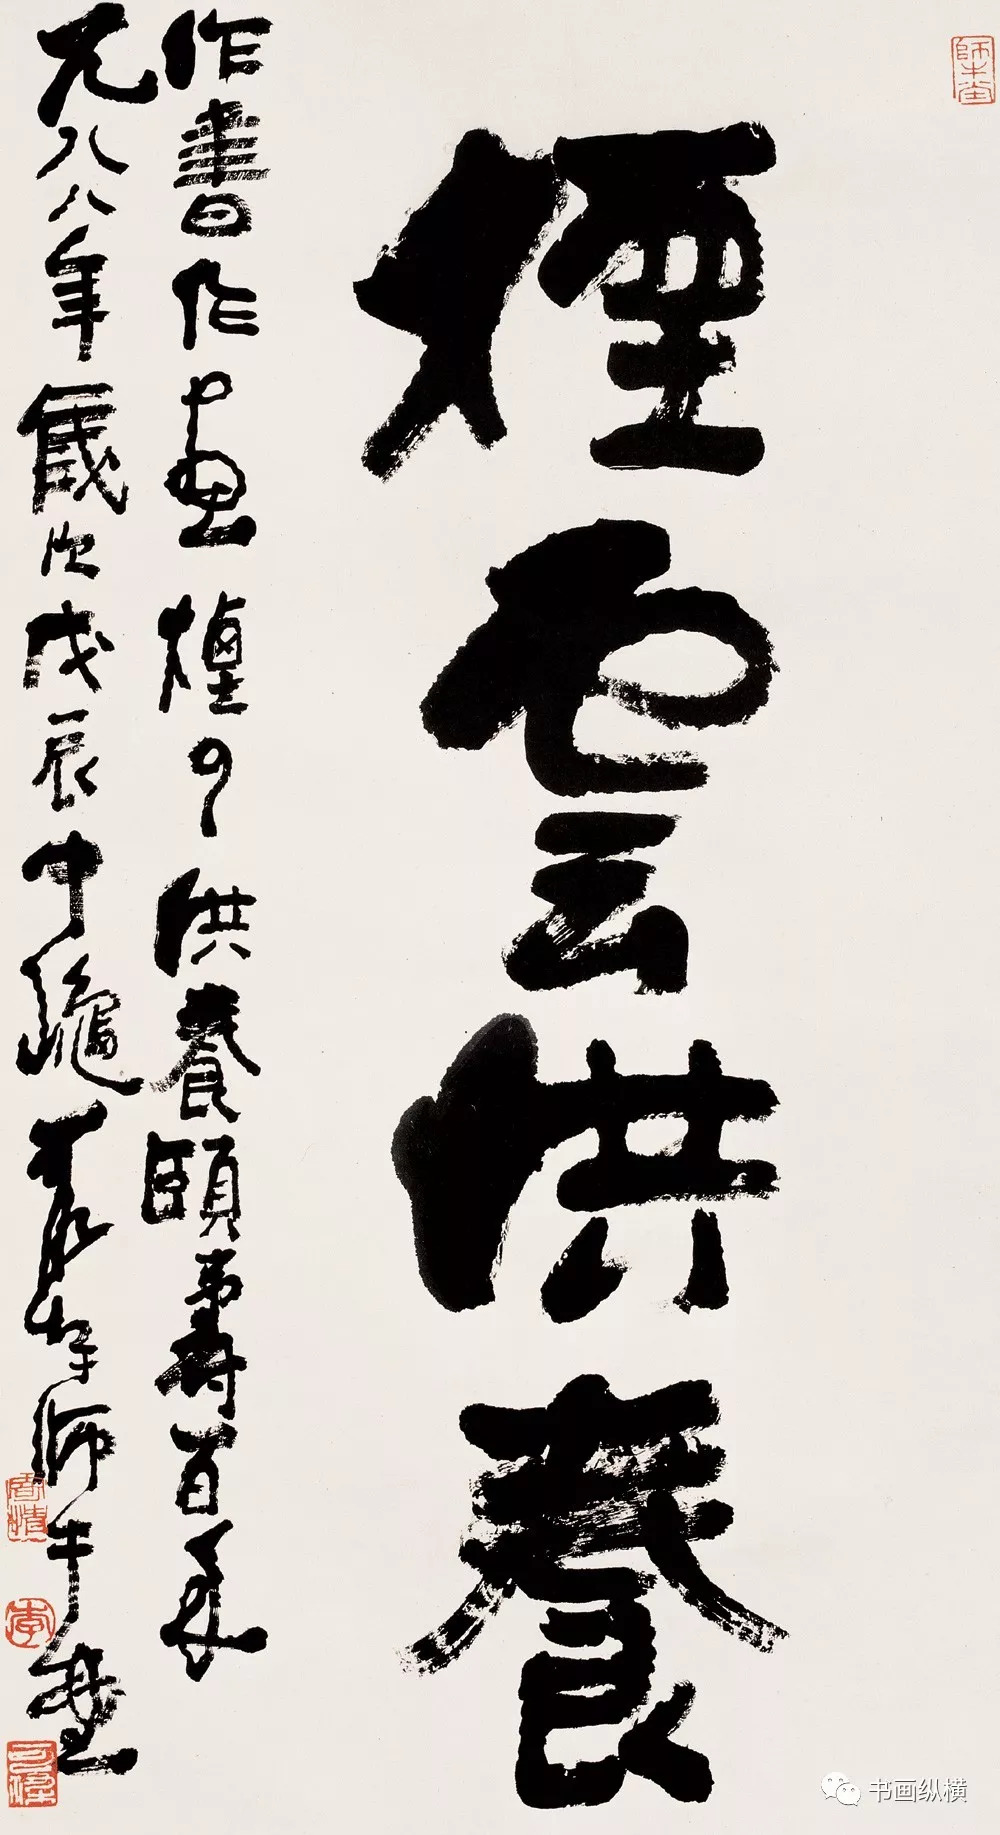 師牛堂
煙雲供養
作書作畫煙雲供養頤壽百年
一九八八年歲次戊辰中龝可染於師牛堂
李
可染
书画纵横